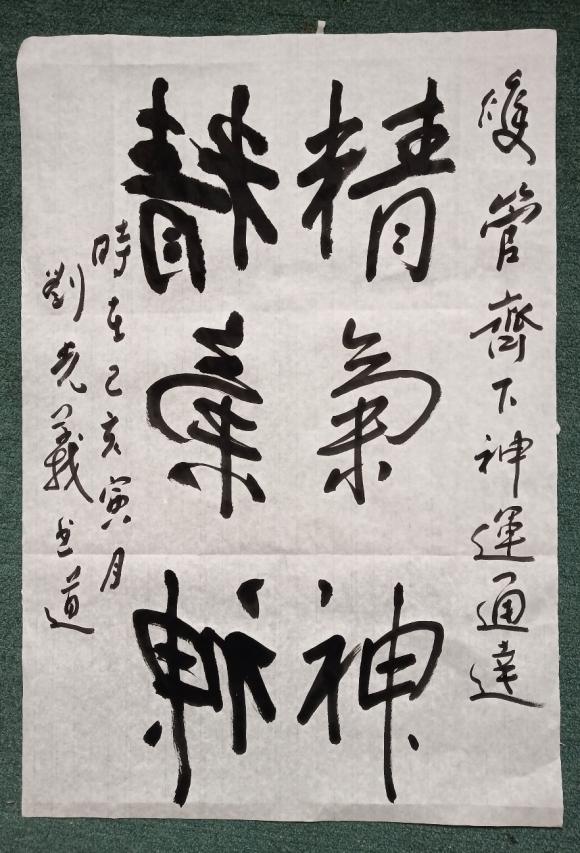 雙管齊下神運通達
精氣神
精氣神
時在己亥寅月
劉光義書道